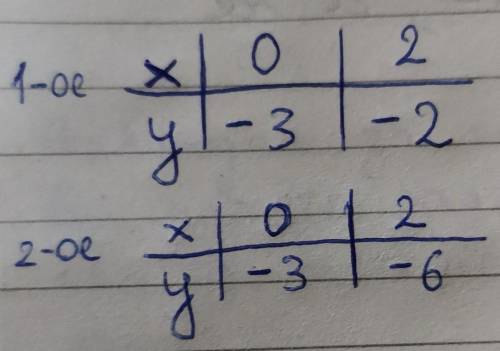 1-ое x 0 2
y -3 -2
2-ое x 0 2
y -3 -6